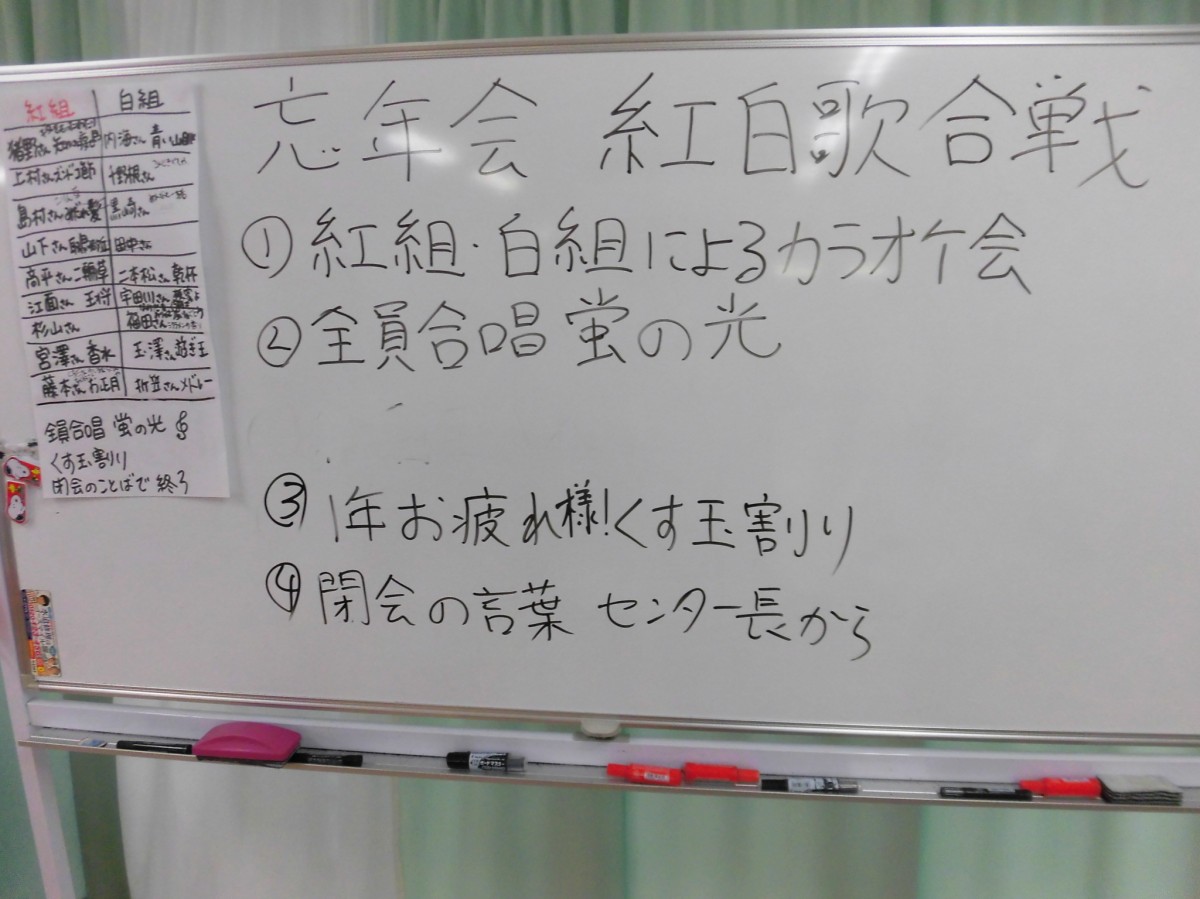 忘年会 紅白歌合戦
① 紅組・白組によるカラオケ会
② 全員合唱 蛍の光
③ 1年お疲れ様!くす玉割り
④ 閉会の言葉 センター長から
紅組 白組
猪野さん 内海さん 青い山脈
上村さん 裡根さん
島村さん 黒崎さん
山下さん 田中さん
高平さん 二輪草 二本松さん 乾杯
江面さん 王将 宇田川さん
杉山さん 福田さん
宮澤さん 香水 玉澤さん
藤本さん お正月 折登さん メドレー
全員合唱 蛍の光
くす玉割り
閉会のことばで終了